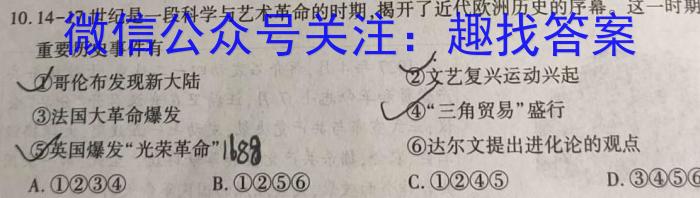 10.14-17世纪是一段科学与艺术革命的时期,揭开了近代欧洲历史的序幕。这一时期
重要历史事件有
微信公众号关注：趣找答案
①哥伦布发现新大陆
②文艺复兴运动兴起
③法国大革命爆发
④“三角贸易”盛行
⑤英国爆发“光荣革命”1688
⑥达尔文提出进化论的观点
A.①②③④ B.①②⑤⑥ C.①②④⑤ D.③④⑤⑥